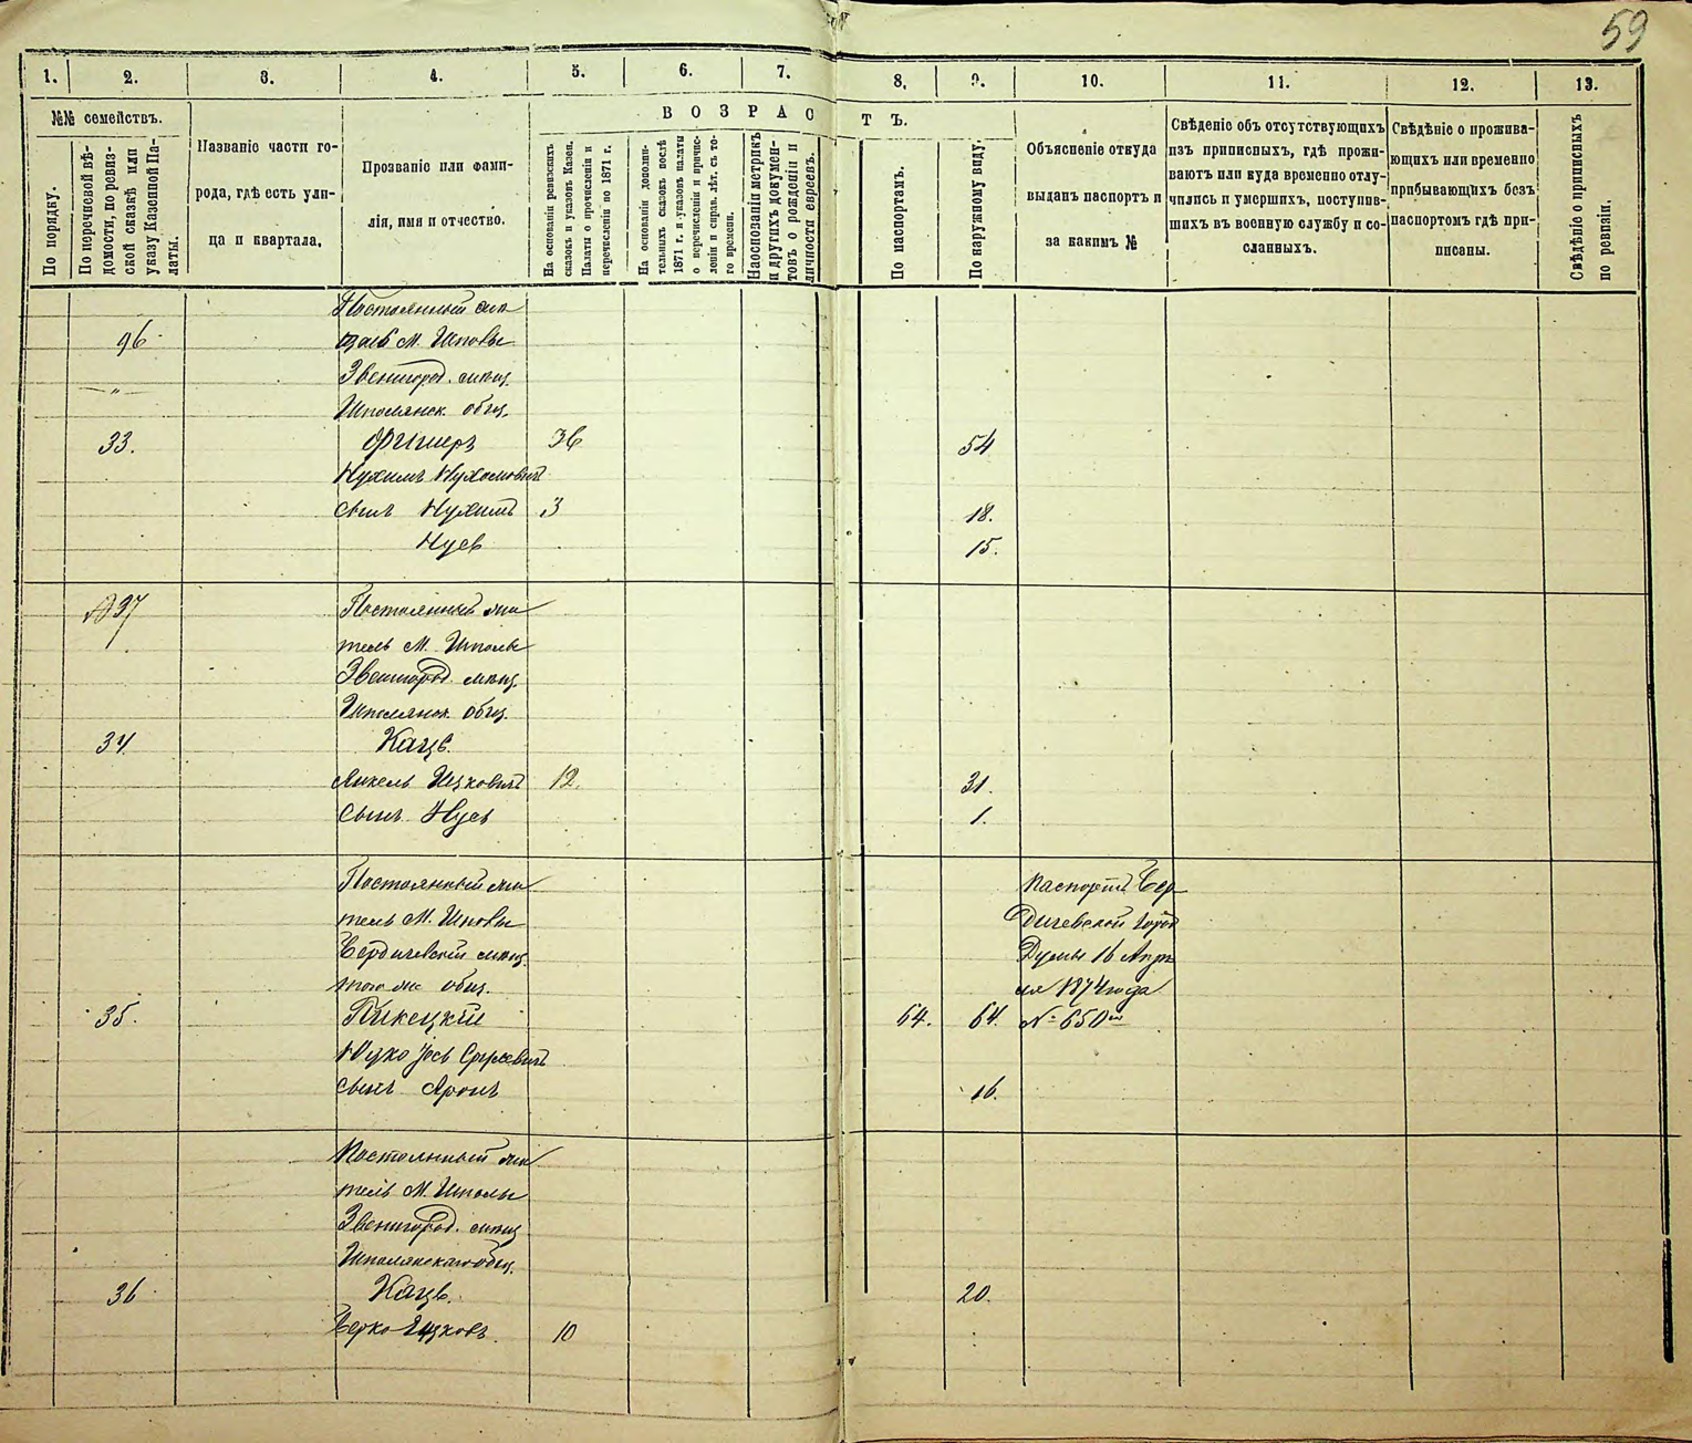 59
1. 2. 3. 4. 5. 6. 7. 8. 9. 10. 11. 12. 13.
№№ семействъ.
По порядку.
По перечневой вѣ-
домости, по ревиз-
ской сказкѣ или
указу Казенной Па-
латы.
Названіе части го-
рода, гдѣ есть ули-
ца и квартала.
Прозваніе или фами-
лія, имя и отчество.
ВОЗРАС
ТЪ.
На основаніи ревизскихъ
сказокъ и указовъ Казен.
Палаты о причисленіи и
перечисленіи по 1871 г.
На основаніи дополни-
тельныхъ сказокъ послѣ
1871 г. и указовъ палаты
о перечисленіи и причис-
леніи и справ. лѣт. съ то-
го времени.
На основаніи метрикъ
и другихъ докумен-
товъ о рожденіи и
личности евреевъ.
По паспортамъ.
По наружному виду.
Объясненіе откуда
выданъ паспортъ и
за какимъ №
Свѣденіе объ отсутствующихъ
изъ приписныхъ, гдѣ прожи-
ваютъ или куда временно отлу-
чились и умершихъ, поступив-
шихъ въ военную службу и со-
сланныхъ.
Свѣдѣніе о прожива-
ющихъ или временно
прибывающихъ безъ
паспортомъ гдѣ при-
писаны.
Свѣдѣніе о приписныхъ
по ревизіи.
Постоянный
96 М. Шполы
" Звенигород. мѣщ.
Шполянск. общ.
33. Фишеръ 36 54
Нухимъ
сынъ Нухимъ 3 18.
15.
37 Постоянный жи
тель М. Шполы
Звенигород. мѣщ.
Шполянск. общ.
34 Кацъ.
Янкель Ицковичъ 12. 31.
Сынъ 1.
Постоянный жи Паспортъ Бер
тель М. Шполы дичевской Город
Бердичевскій мѣщ. Думы 16 Апрѣ
того же общ. ля 1874 года
35. 64. 64. № 650
сынъ Аронъ 16.
Постоянный жи
тель М. Шполы
Звенигород. мѣщ
Шполянскаго общ.
36 Кацъ. 20.
Берко 10